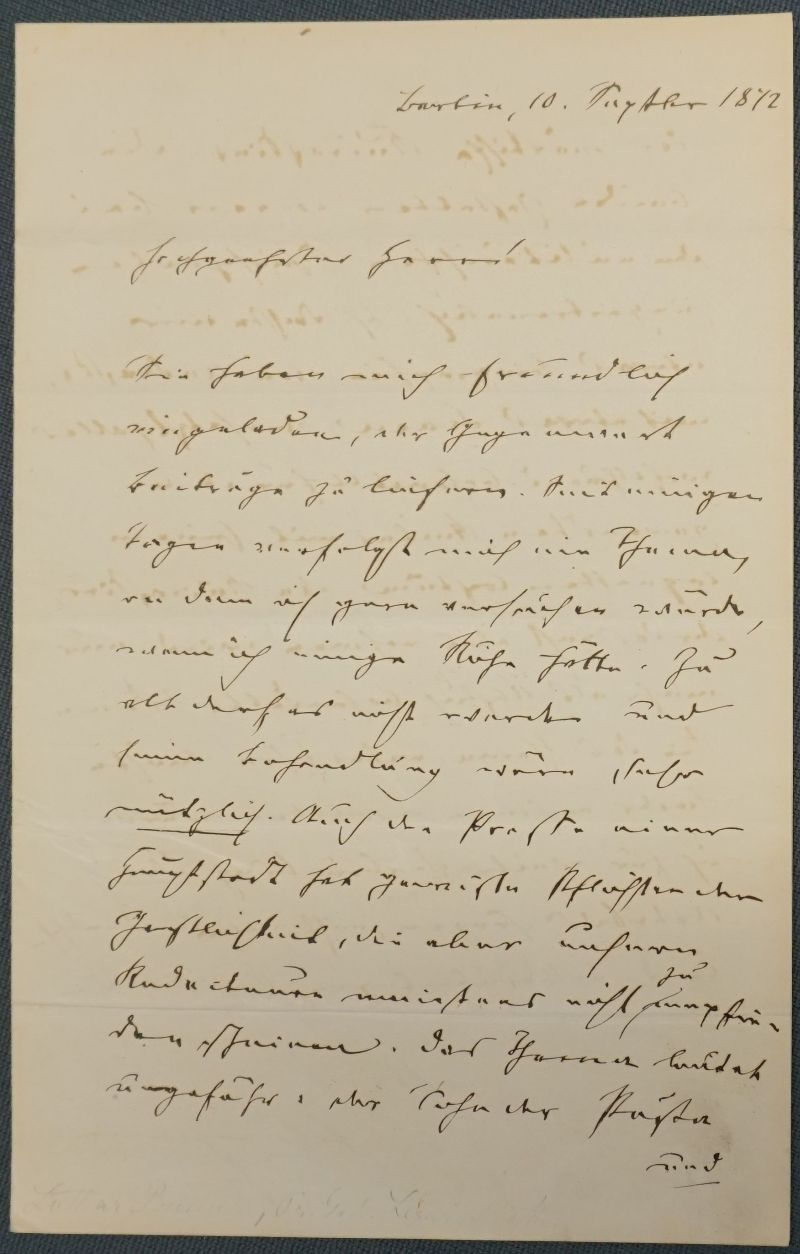 Berlin, 10. Septbr 1872
Hochgeehrter Herr!
Sie haben mich freundlich
eingeladen, der Gegenwart
Beiträge zu liefern. Seit einigen
Tagen verfolgt mich ein Thema,
an dem ich gern versuchen würde,
wenn ich einige Ruhe hätte. Zu
alt darf es nicht werden und
seine Behandlung wäre sehr
nützlich. Auch die Presse einer
Hauptstadt hat gewisse Pflichten der
Gastlichkeit, die aber unseren
Redacteuren meistens nicht zu empfin-
den scheinen. Das Thema lautet
ungefähr: der Sohn der
und